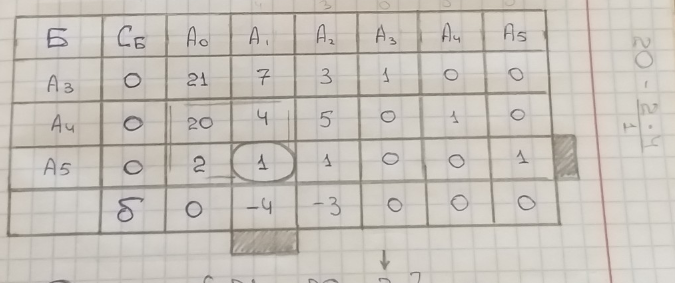 Б Сб A0 A1 A2 A3 A4 A5
A3 0 21 7 3 1 0 0
A4 0 20 4 5 0 1 0
A5 0 2 1 1 0 0 1
б 0 -4 -3 0 0 0
20 - 2·4
1